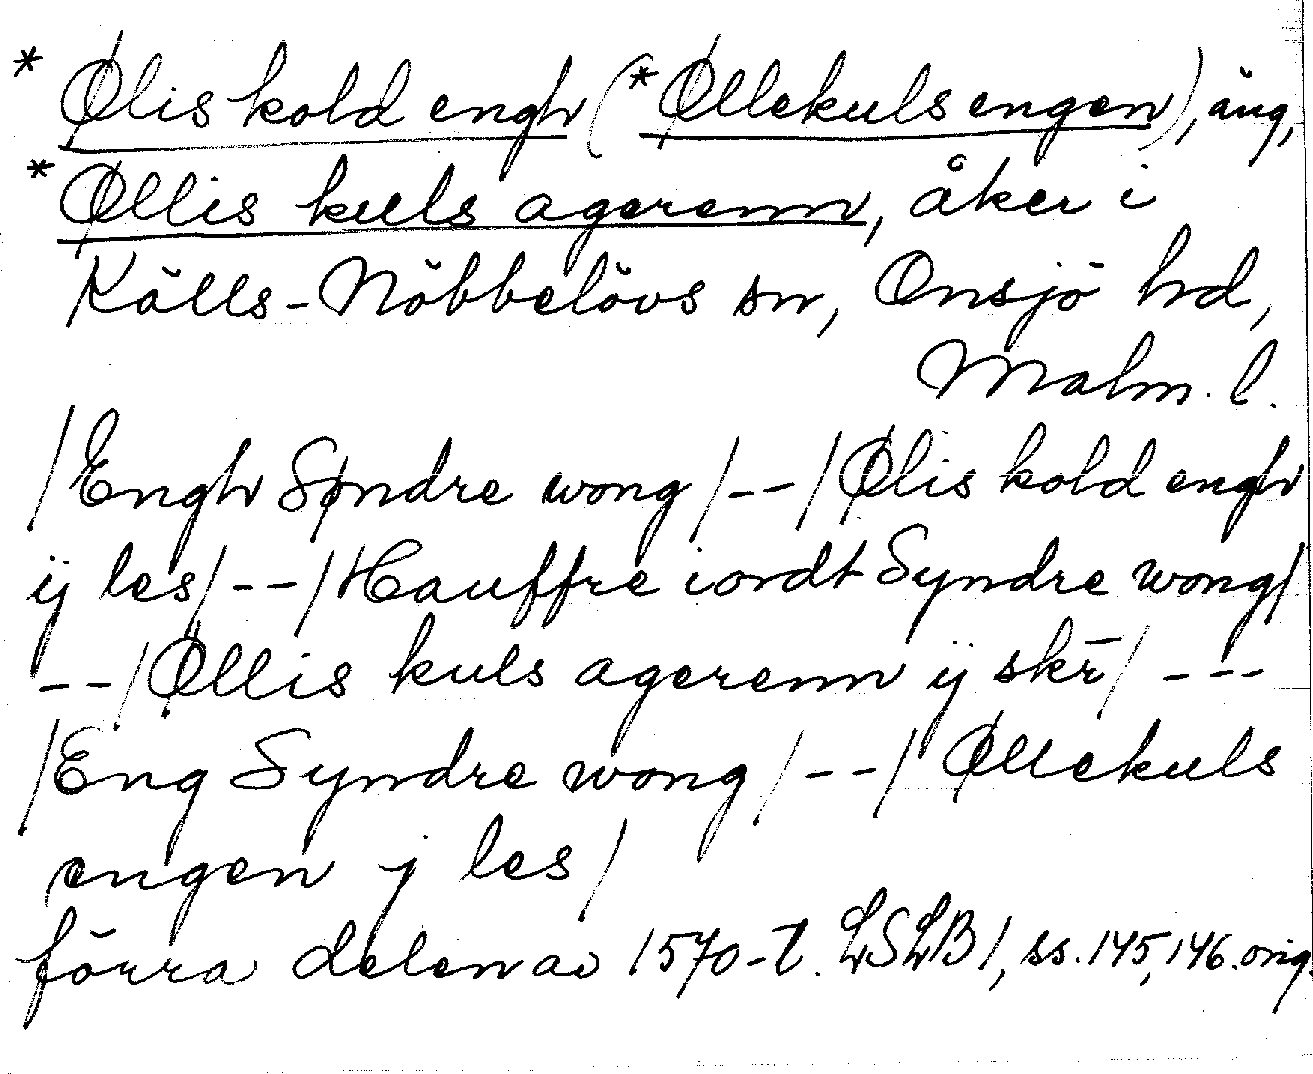 * Ølis kold engh (* Øllekuls engen), äng,
* Øllis kuls agerenn, åker i
Källs-Nöbbelövs sn, Onsjö hd,
Malm. l.
/Engh Søndre wong/--/Ølis kold engh
ij les/--/Hauffre iordt Syndre wong/
--/Øllis kuls agerenn ij skr̄/---
/Eng Syndre wong/--/Øllekuls
engen j les/
förra delen av 1570-t. LSLB 1, ss. 145, 146. orig.